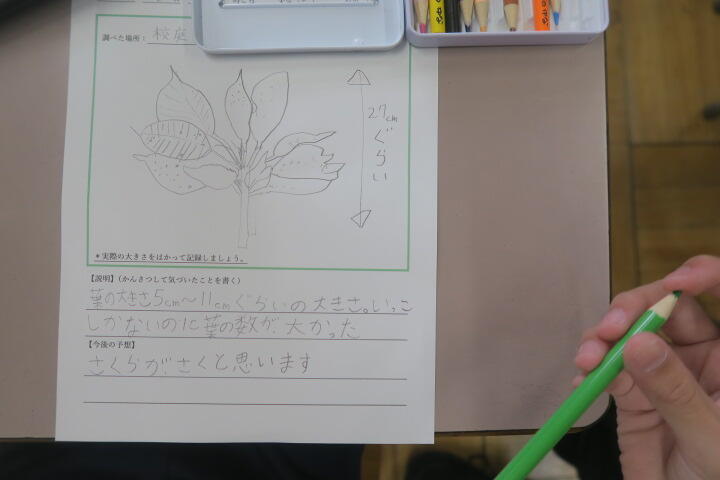 調べた場所： 校庭
27cmぐらい
＊実際の大きさをはかって記録しましょう。
【説明】（かんさつして気づいたことを書く）
葉の大きさ5cm〜11cmぐらいの大きさ。いっこ
しかないのに葉の数が大かった
【今後の予想】
さくらがさくと思います